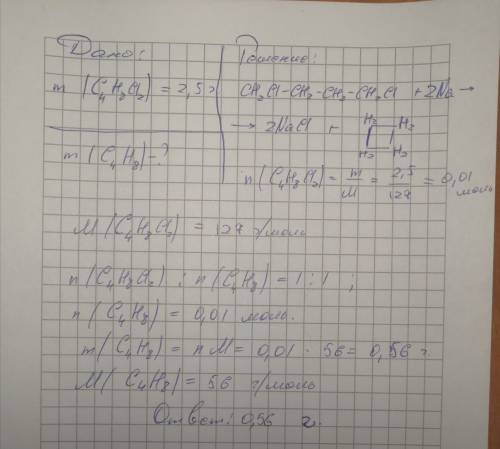 Дано:
m (C₄H₈Cl₂) = 2,5 г
m (C₄H₈) - ?
Решение:
CH₂Cl-CH₂-CH₂-CH₂Cl + 2Na →
→ 2NaCl +
H₂ H₂
H₂ H₂
n (C₄H₈Cl₂) = m/M = 2,5/127 = 0,01 моль
M (C₄H₈Cl₂) = 127 г/моль
n (C₄H₈Cl₂) : n (C₄H₈) = 1 : 1 ;
n (C₄H₈) = 0,01 моль.
m (C₄H₈) = n M = 0,01 · 56 = 0,56 г.
M (C₄H₈) = 56 г/моль
Ответ: 0,56 г.